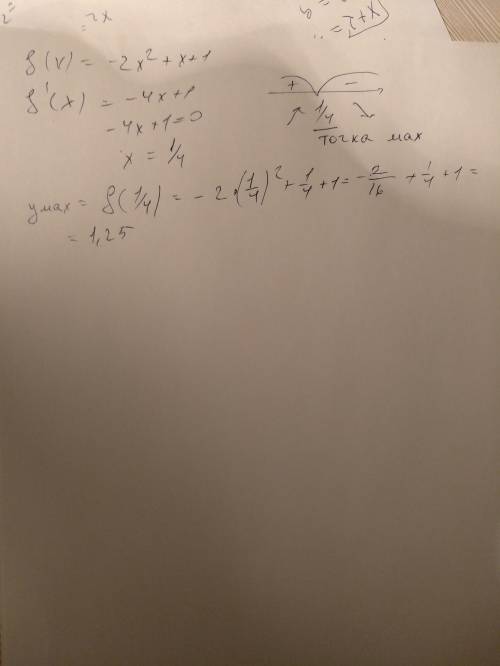 f(x) = -2x² + x+1
f'(x) = -4x+1
-4x+1=0
x = 1/4
+ -
1/4
точка max
yмах = f(1/4) = - 2·(1/4)² + 1/4 + 1 = -2/16 + 1/4 + 1 =
= 1,25